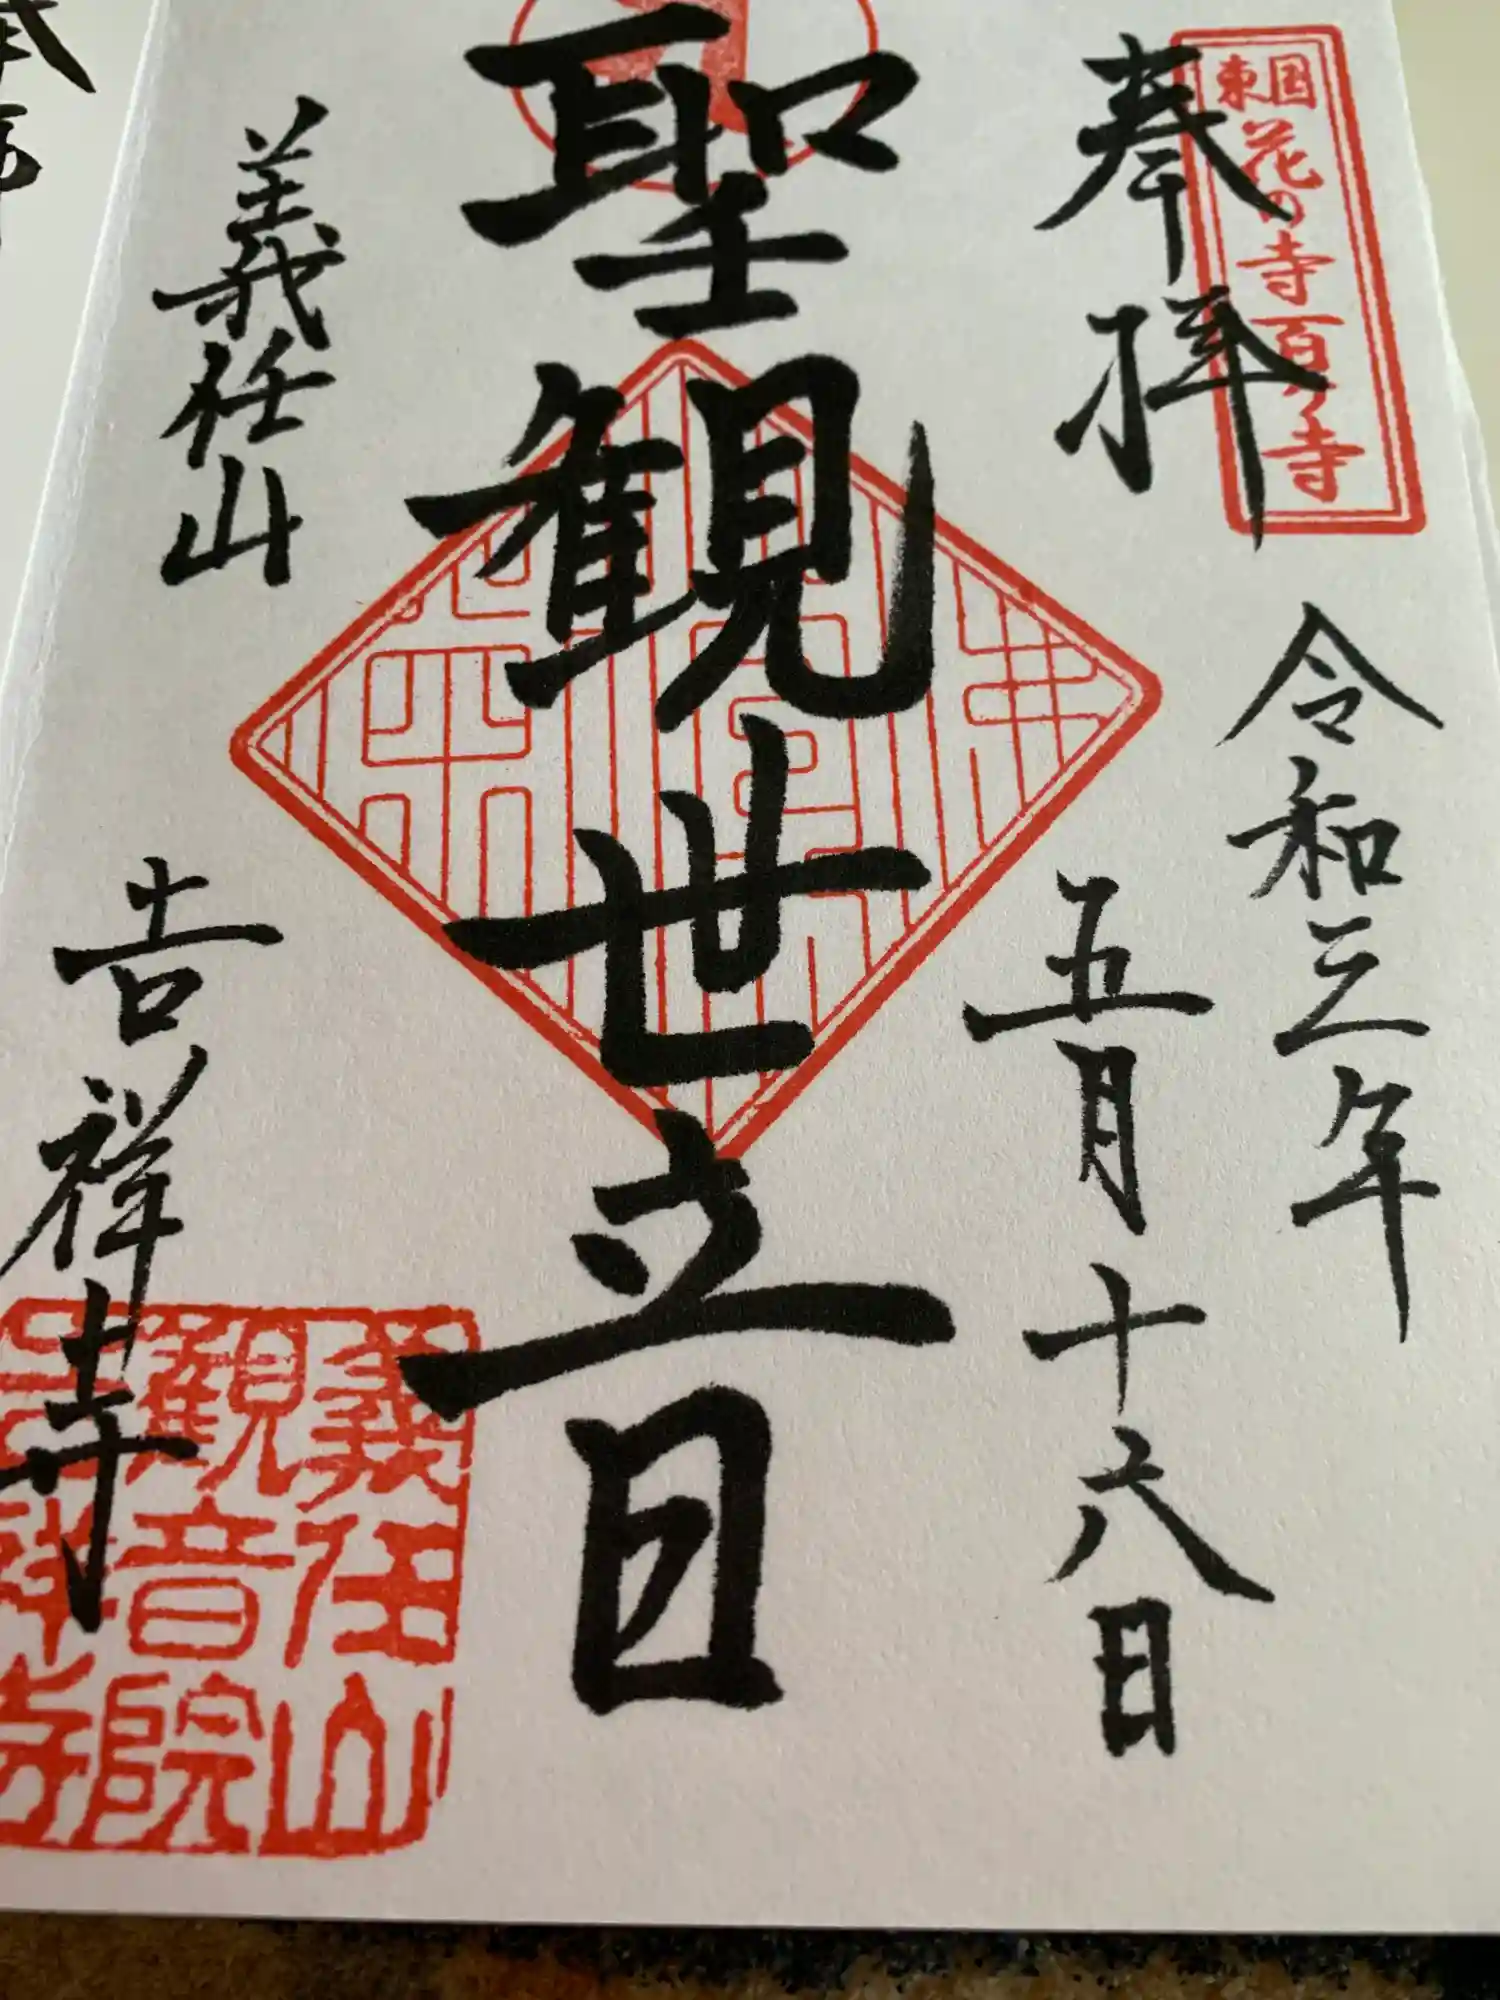 奉拝
東国
花の寺百ヶ寺
令和三年
五月十六日
聖観世音
義任山
吉祥寺
義任山
観音院
吉祥寺